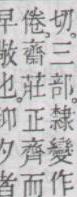 切。三部。隸變作
倦。齋莊正齊而
早敬也。卬夕者